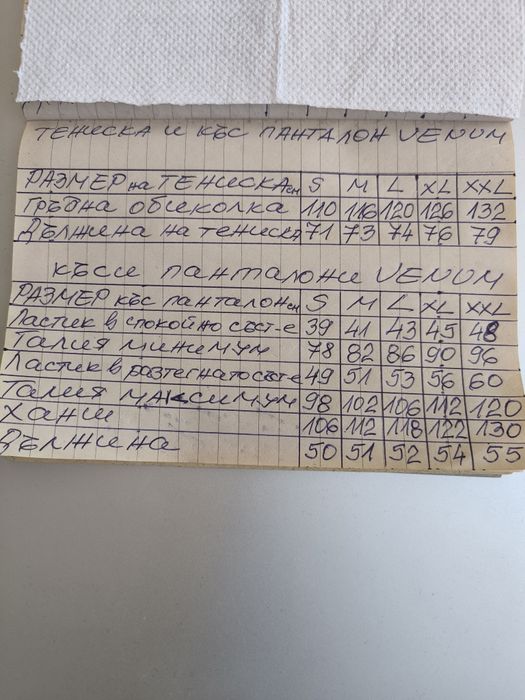 ТЕНИСКА И КЪС ПАНТАЛОН VENUM
РАЗМЕР на ТЕНИСКА см S M L XL XXL
ГРЪДНА ОБИКОЛКА 110 116 120 126 132
ДЪЛЖИНА НА ТЕНИСКА 71 73 74 76 79
КЪСИ ПАНТАЛОНИ VENUM
РАЗМЕР КЪС ПАНТАЛОН см S M L XL XXL
Ластик в спокойно съст-е 39 41 43 45 48
Талия минимум 78 82 86 90 96
Ластик в разтегнато съст-е 49 51 53 56 60
Талия максимум 98 102 106 112 120
Ханш 106 112 118 122 130
Дължина 50 51 52 54 55